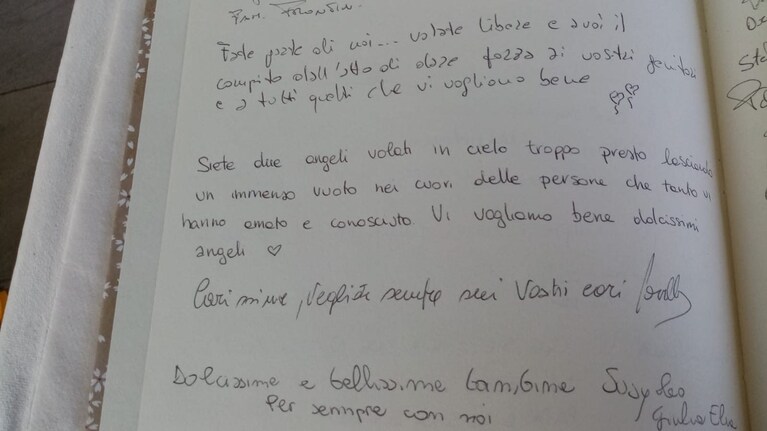 FAM.
Fate parte di noi... volate libere e a voi il
compito dall'alto di dare forza ai vostri genitori
e a tutti quelli che vi vogliono bene
Siete due angeli volati in cielo troppo presto lasciando
un immenso vuoto nei cuori delle persone che tanto vi
hanno amato e conosciuto. Vi vogliamo bene dolcissimi
angeli ♡
Carissime, vegliate sempre sui Vostri cari
Dolcissime e bellissime bambine Susy Leo
Per sempre con noi Giulia Elia